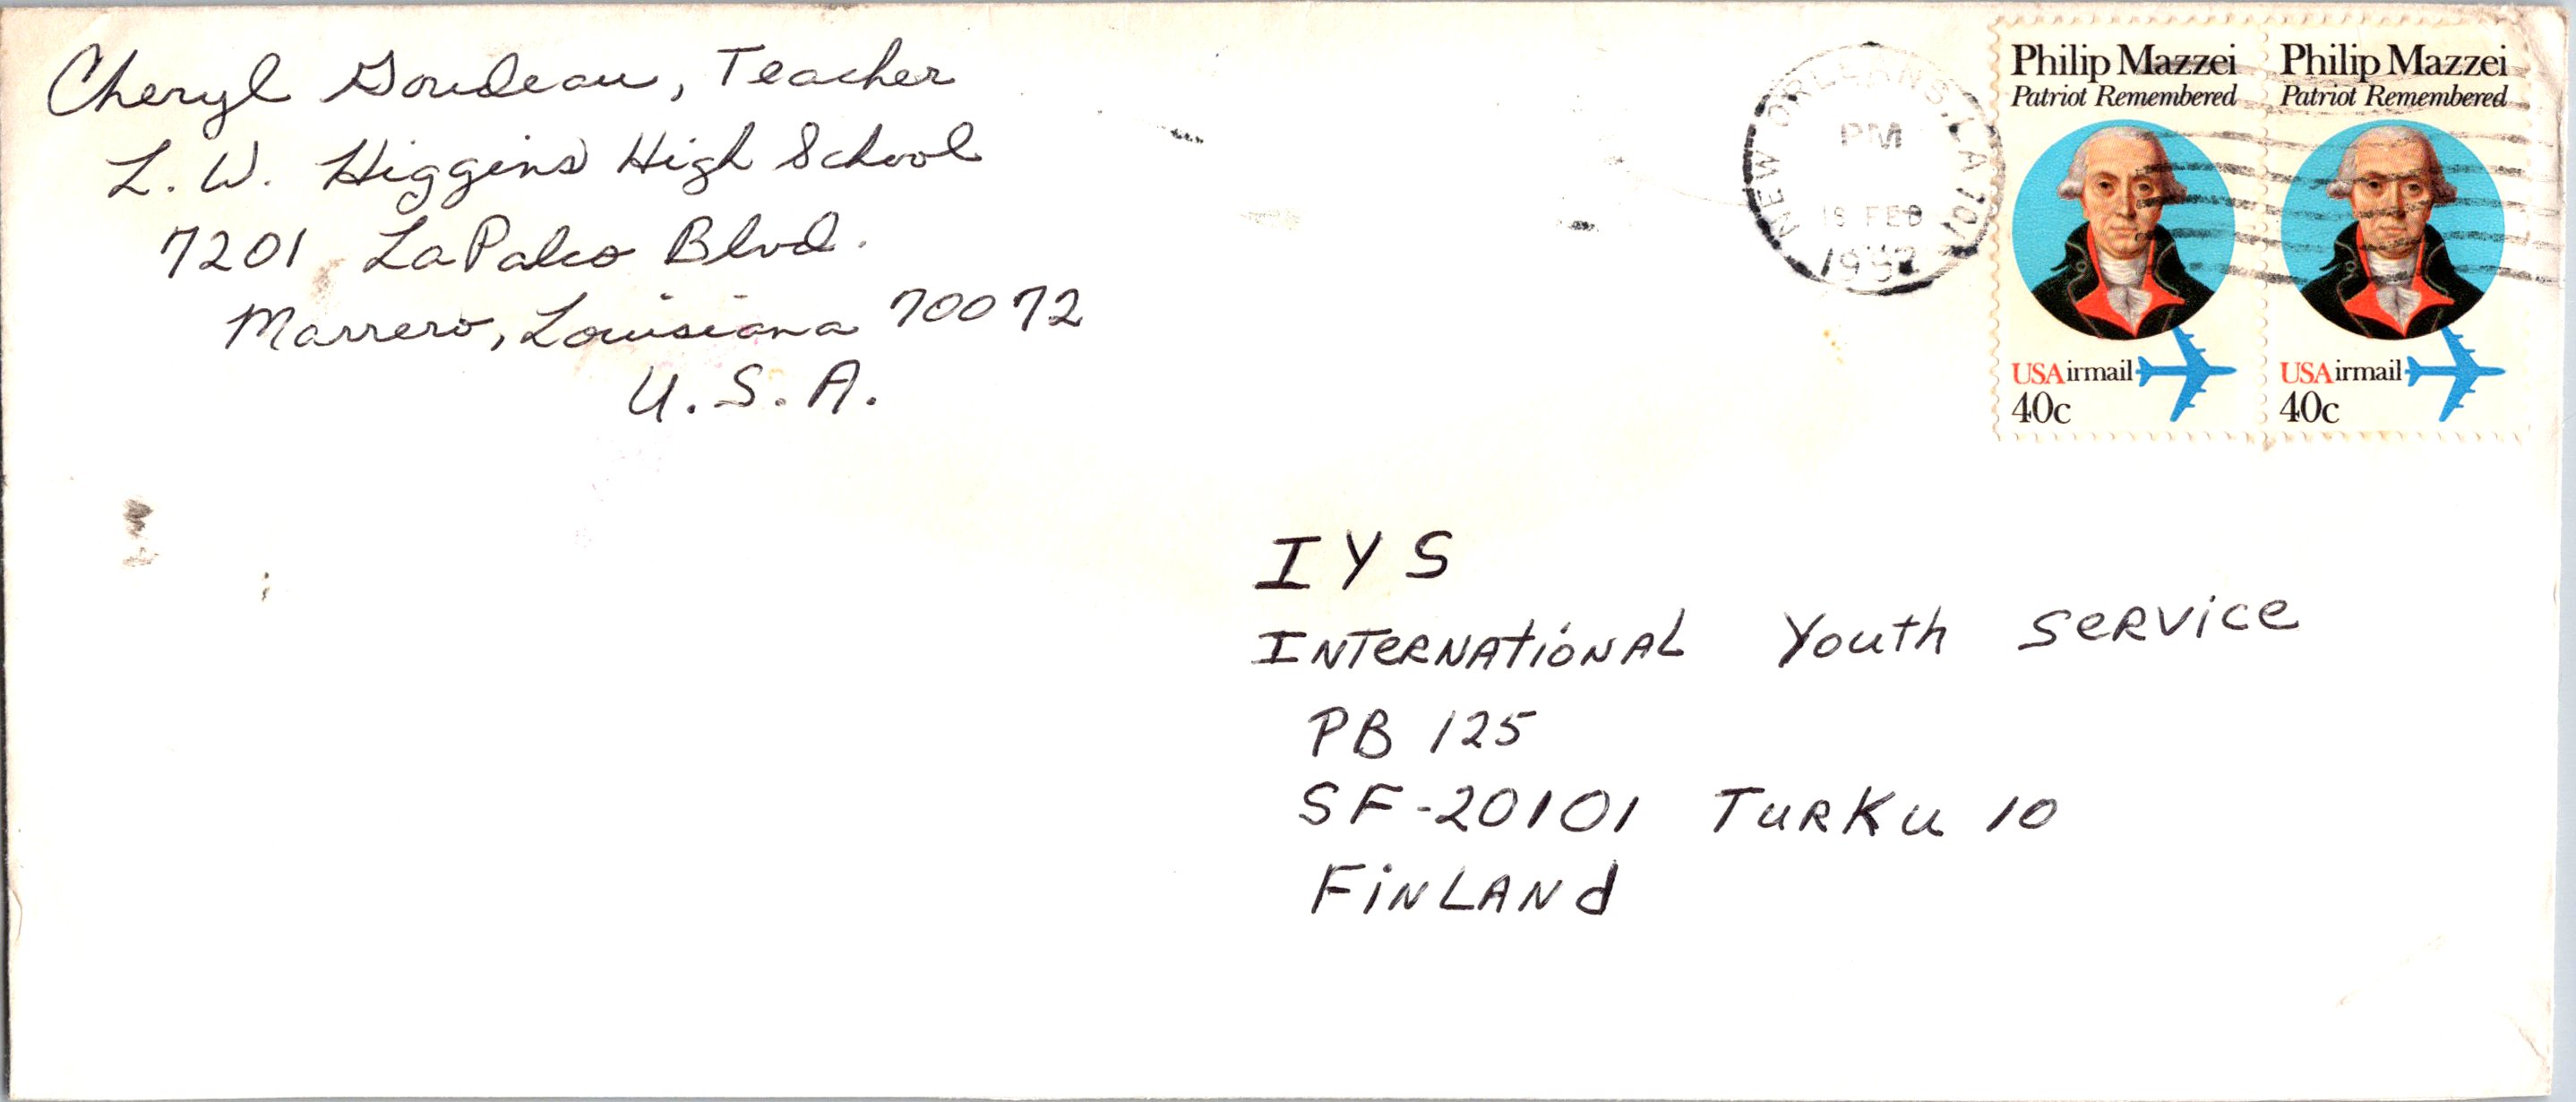 Cheryl Goudeau, Teacher
L. W. Higgins High School
7201 LaPalco Blvd.
Marrero, Louisiana 70072
U.S.A.
NEW ORLEANS, LA 701
PM
19 FEB
1992
Philip Mazzei
Patriot Remembered
USAirmail
40c
Philip Mazzei
Patriot Remembered
USAirmail
40c
IYS
INTERNATIONAL Youth SERVICE
PB 125
SF-20101 TURKU 10
FINLAND